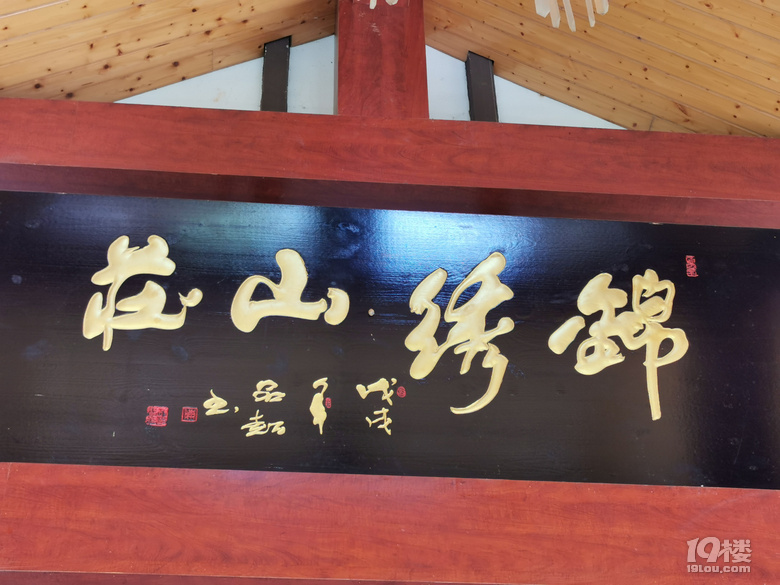 錦綉山莊
戊戌年品书
19楼
19lou.com